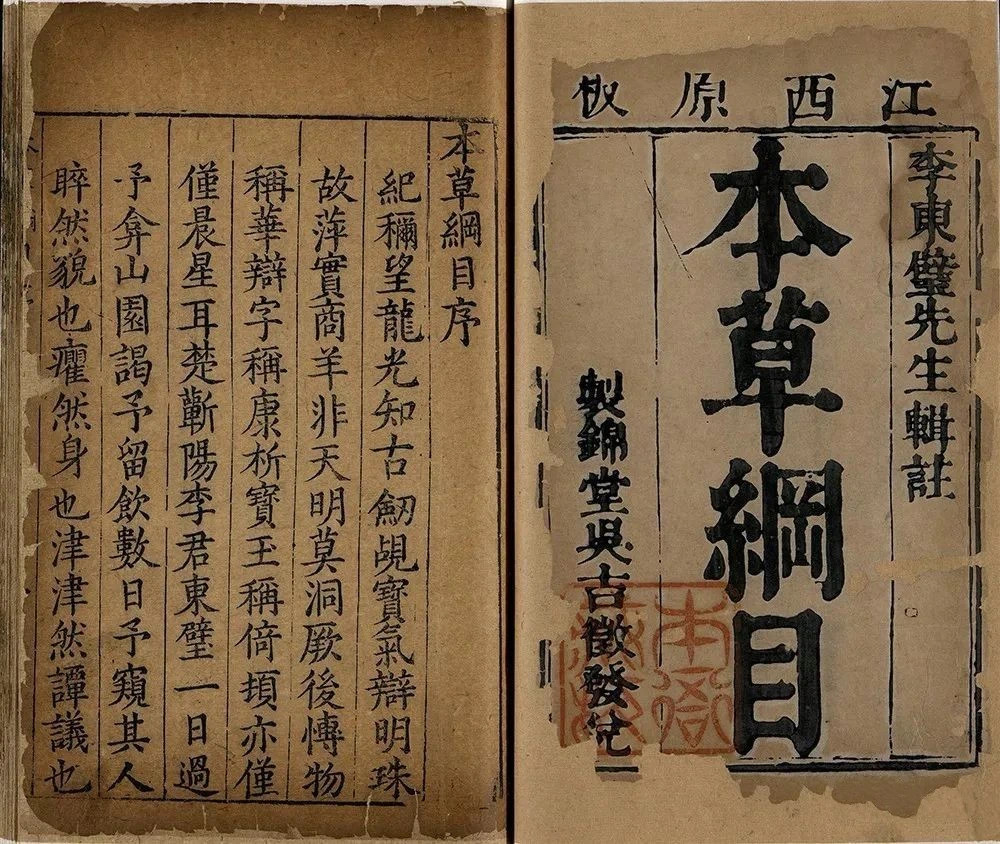 江西原板
李東璧先生輯註
本草綱目
製錦堂吳古徵發兌
本衙
本草綱目序
紀稱望龍光知古劒覘寶氣辯明珠
故萍實商羊非天明莫洞厥後愽物
稱華辯字稱康析寶玉稱倚頓亦僅
僅晨星耳楚蘄陽李君東璧一日過
予弇山園謁予留飲數日予窺其人
睟然貌也癯然身也津津然譚議也